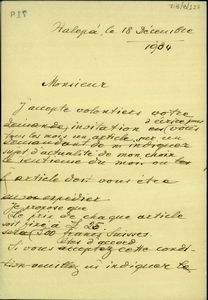 Halepa, le 18 Décembre
1904
Monsieur
J'accepte volontiers votre
demande, invitation d'écrire pour
vous
tous les mois un article, sur un
demandant de m'indiquer
sujet d'actualité de mon choix
le
l'article doit vous être
expédier
Je propose que
le prix de chaque article
soit fixé à
francs Suisses.
d'accord
Si vous acceptez cette condi-
tion veuillez m'indiquer le